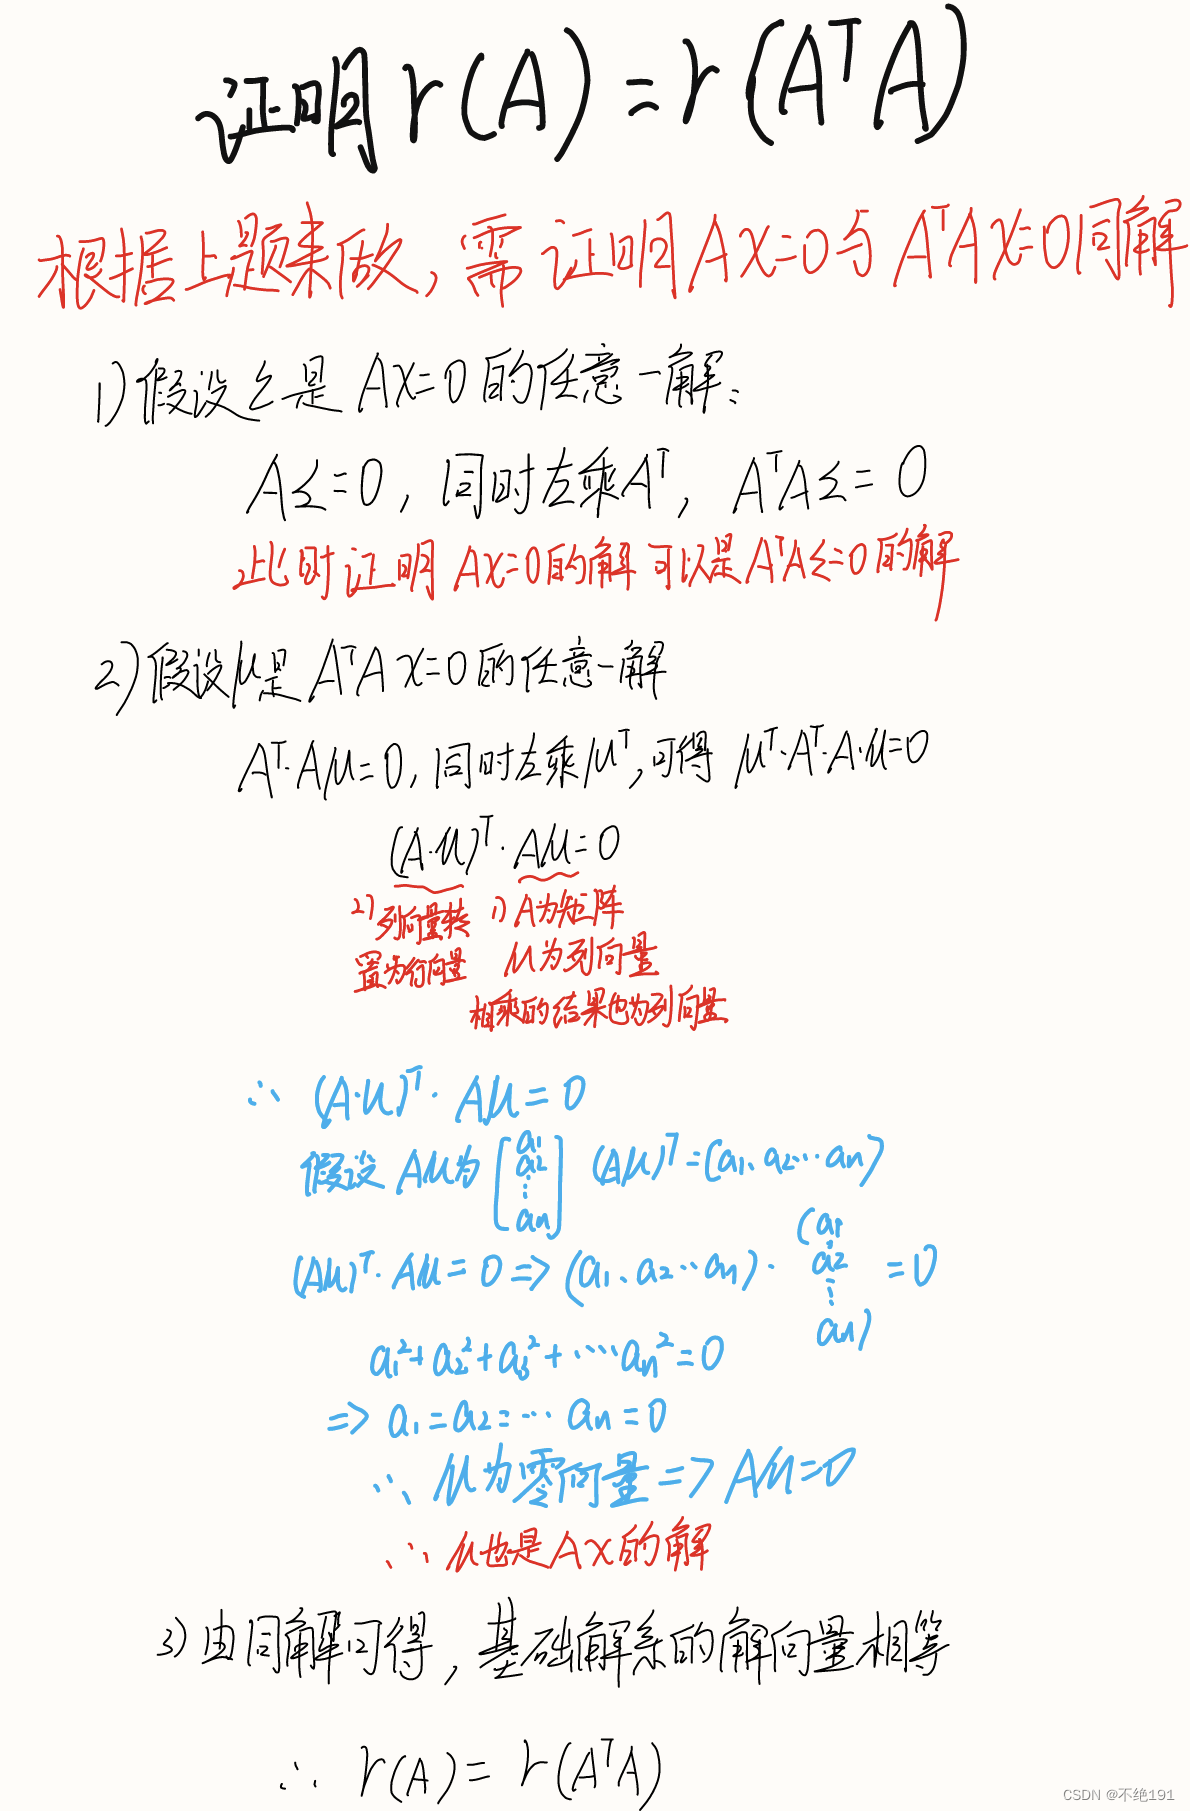 证明 r(A) = r(AᵀA)
根据上题来做, 需证明AX=0与AᵀAX=0同解
1) 假设ξ是 AX=0 的任意一解:
Aξ=0, 同时左乘Aᵀ, AᵀAξ=0
此时证明 AX=0的解可以是AᵀAξ=0的解
2) 假设μ是 AᵀAx=0 的任意一解
Aᵀ·Aμ=0, 同时左乘μᵀ, 可得 μᵀ·Aᵀ·A·μ=0
(A·μ)ᵀ·Aμ=0
2) 列向量转
置为行向量
1) A为矩阵
μ为列向量
相乘的结果也为列向量
∴ (A·μ)ᵀ·Aμ=0
假设 Aμ为 [a1 a2 ⋮ an] (Aμ)ᵀ=(a1、a2…an)
(Aμ)ᵀ·Aμ=0 => (a1、a2…an)·(a1 a2 ⋮ an)=0
a1²+a2²+a3²+……an²=0
=> a1=a2=…an=0
∴ μ为零向量 => Aμ=0
∴ μ也是AX的解
3) 由同解可得, 基础解系的解向量相等
∴ r(A) = r(AᵀA)
CSDN @不绝191